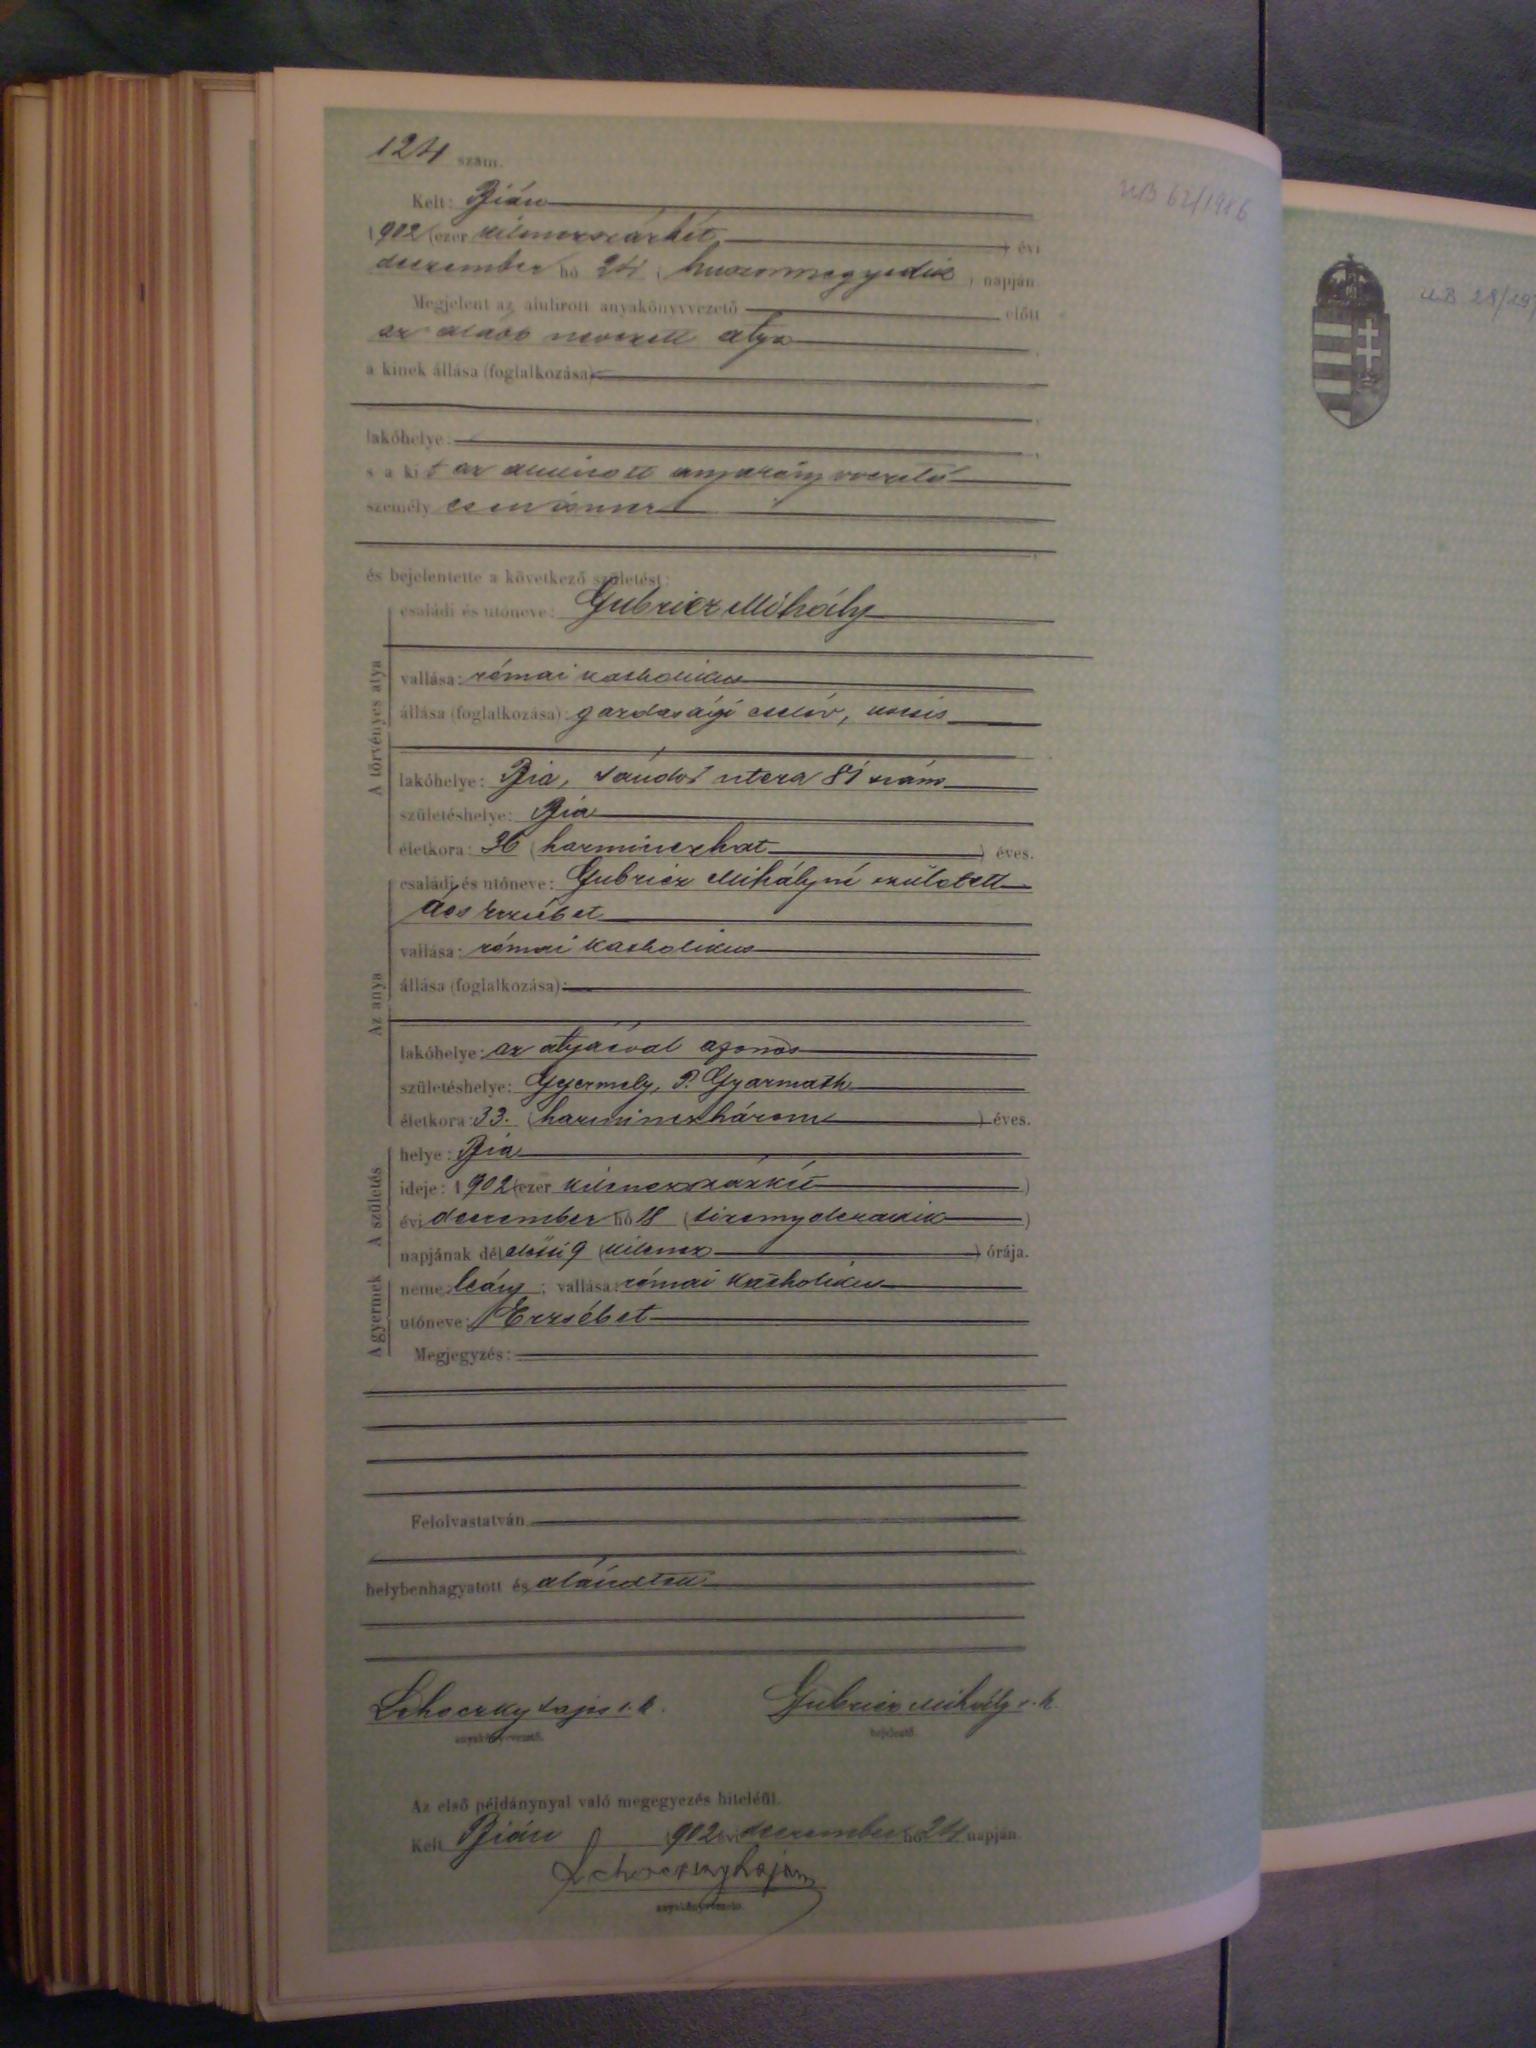 124 szám.
UB 62/1986
Kelt: Bián
1902 (ezer kilenczszázkét ) évi
deczember hó 24 ( huszonnegyedik ) napján
Megjelent az alulirott anyakönyvvezető előtt
az alább nevezett atya
a kinek állása (foglalkozása)
lakóhelye:
s a kit az alulirott anyakönyvvezető
személyesen ismer
és bejelentette a következő születést:
A törvényes atya
családi és utóneve: Gubricz Mihály
vallása: római katholikus
állása (foglalkozása): gazdasági cseléd, kocsis
lakóhelye: Bia, Sándor utcza 81 szám
születéshelye: Bia
életkora: 36 (harminczhat ) éves.
Az anya
családi és utóneve: Gubricz Mihályné született
Ács Erzsébet
vallása: római katholikus
állása (foglalkozása):
lakóhelye: az atyáéval azonos
születéshelye: Gyermely, P. Gyarmath
életkora: 33. (harminczhárom ) éves.
A születés
helye: Bia
ideje: 1902 (ezer kilenczszázkét )
évi deczember hó 18 (tizennyolczadik )
napjának délelőtti 9 (kilencz ) órája.
A gyermek
neme: leány; vallása: római katholikus
utóneve: Erzsébet
Megjegyzés:
Felolvastatván
helybenhagyatott és aláíratott
Lehoczky Lajos s. k. Gubricz Mihály s. k.
anyakönyvvezető. bejelentő.
Az első példánynyal való megegyezés hiteléül.
Kelt Bián 1902 évi deczember hó 24 napján
Lehoczky Lajos
anyakönyvvezető.